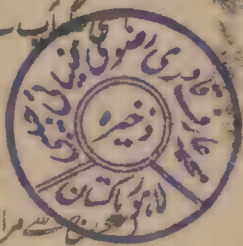 محمد عارف قادری رضوی ضیائی
ذخیرہ
لاہور پاکستان
سے مرا